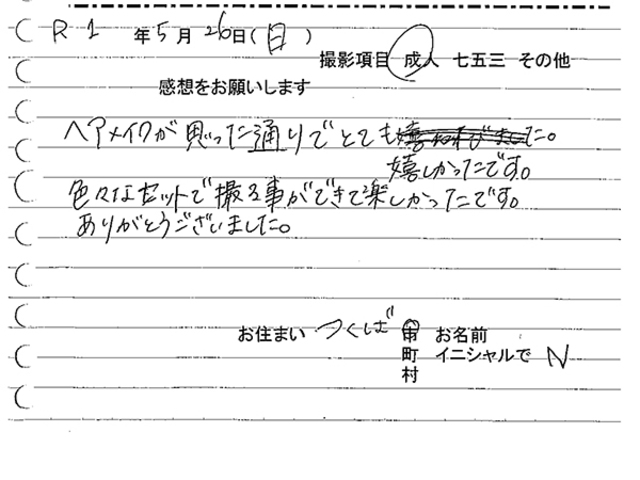 R1 年5月26日(日)
撮影項目 成人 七五三 その他
感想をお願いします
ヘアメイクが思った通りでとても
嬉しかったです。
色々なセットで撮る事ができて楽しかったです。
ありがとうございました。
お住まい つくば 市 お名前
町 イニシャルで N
村